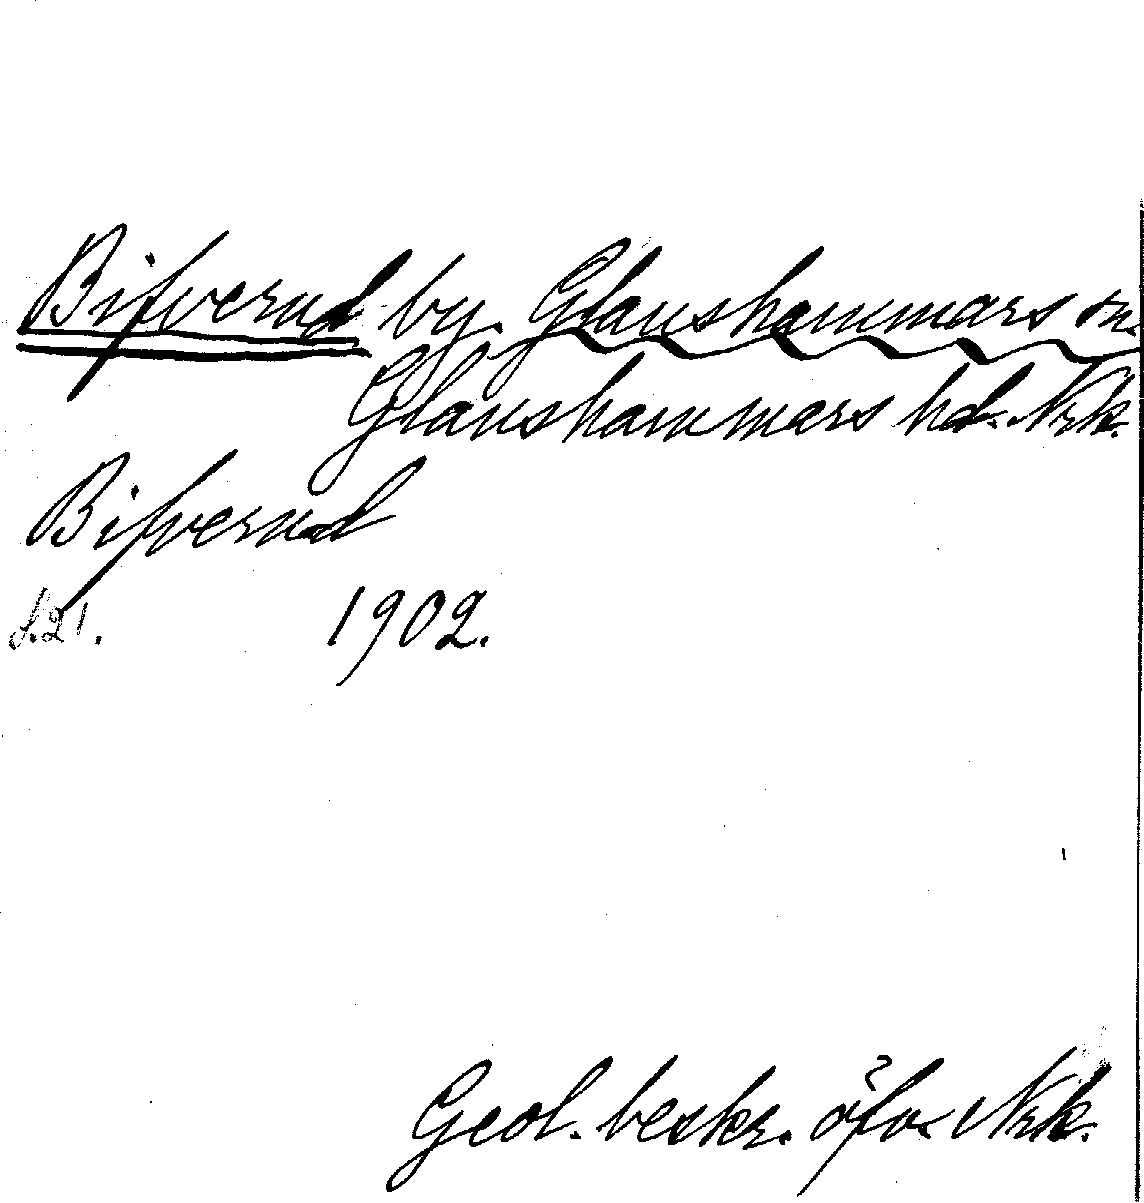 Bifverud by. Glanshammars sn.
Glanshammars hd. Nrk.
Bifverud
s. 21. 1902.
Geol. beskr. öfv. Nrk.